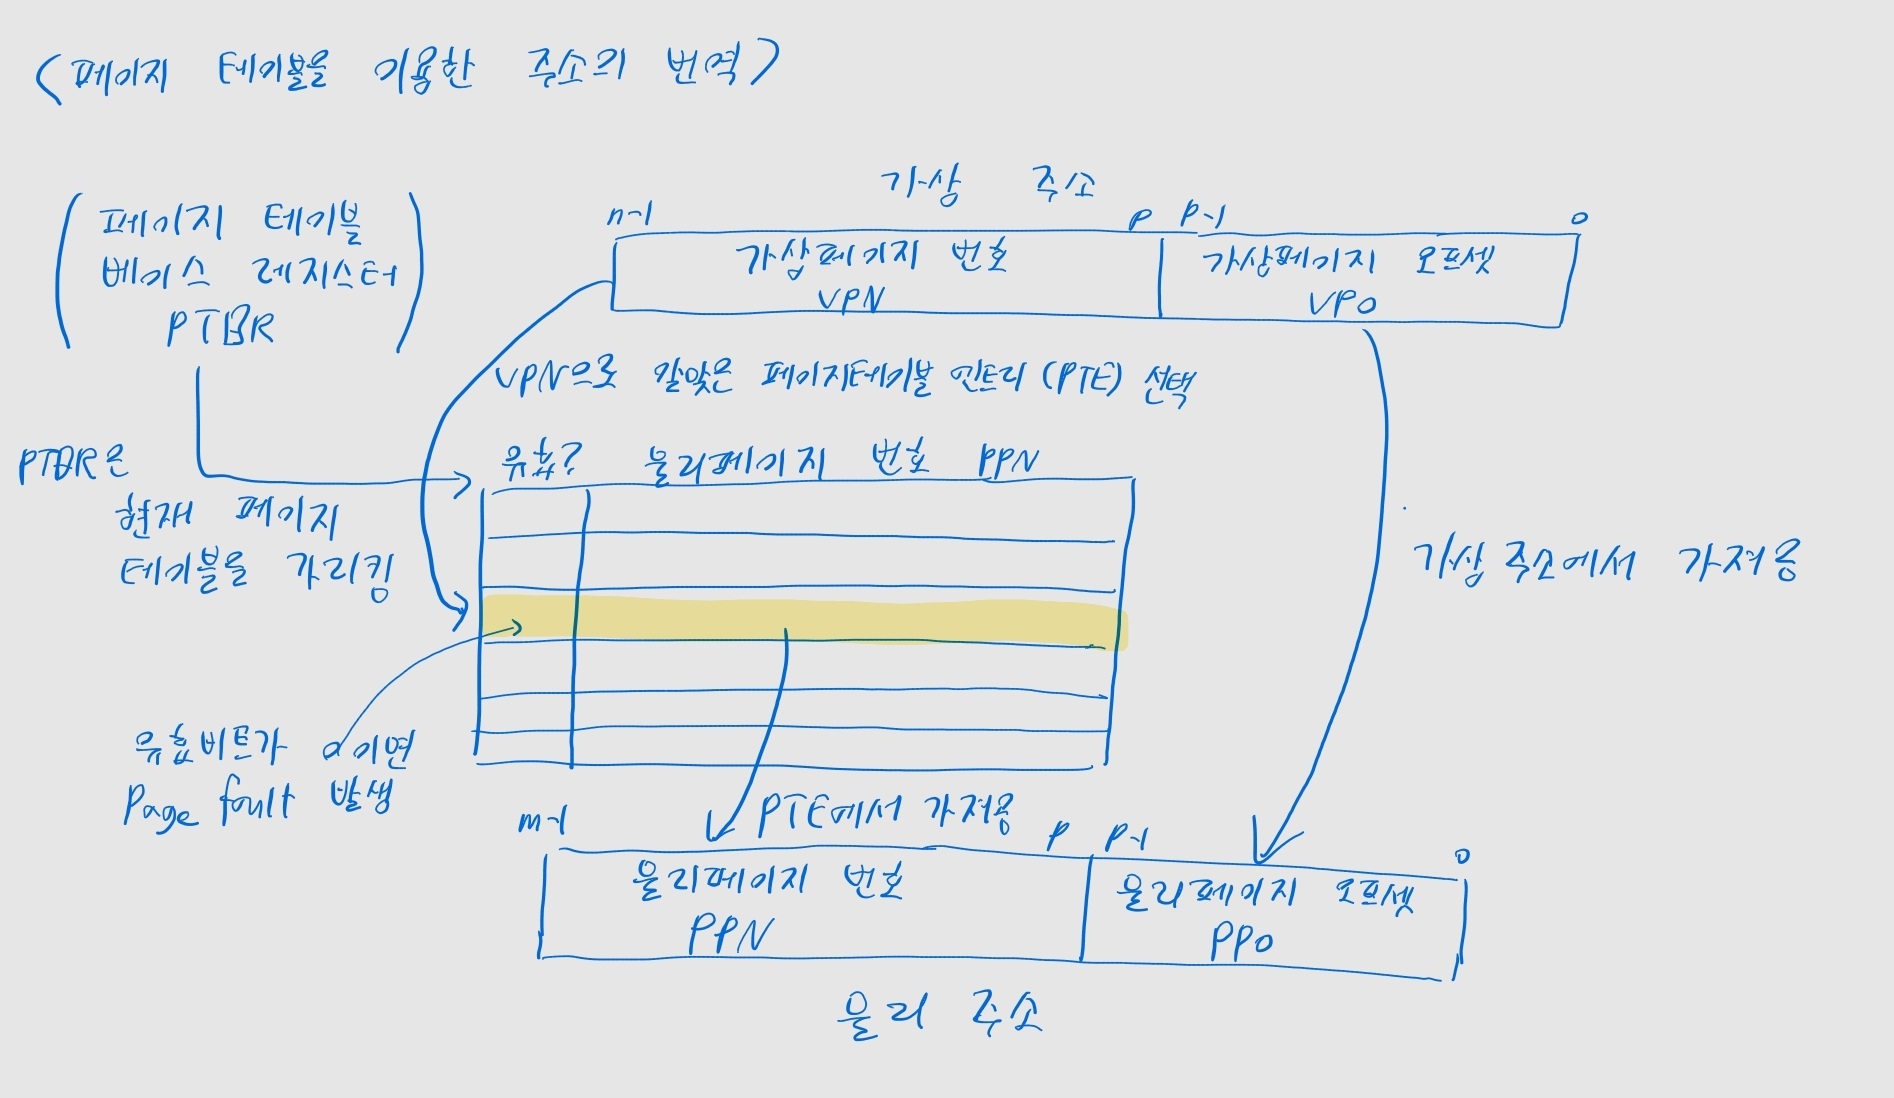 <페이지 테이블을 이용한 주소의 번역>
가상 주소
n-1 p p-1 0
가상페이지 번호
VPN
가상페이지 오프셋
VPO
페이지 테이블
베이스 레지스터
PTBR
VPN으로 알맞은 페이지테이블 엔트리 (PTE) 선택
PTBR은
현재 페이지
테이블을 가리킴
유효? 물리페이지 번호 PPN
가상 주소에서 가져옴
유효비트가 0이면
Page fault 발생
PTE에서 가져옴
m-1 p p-1 0
물리페이지 번호
PPN
물리페이지 오프셋
PPO
물리 주소